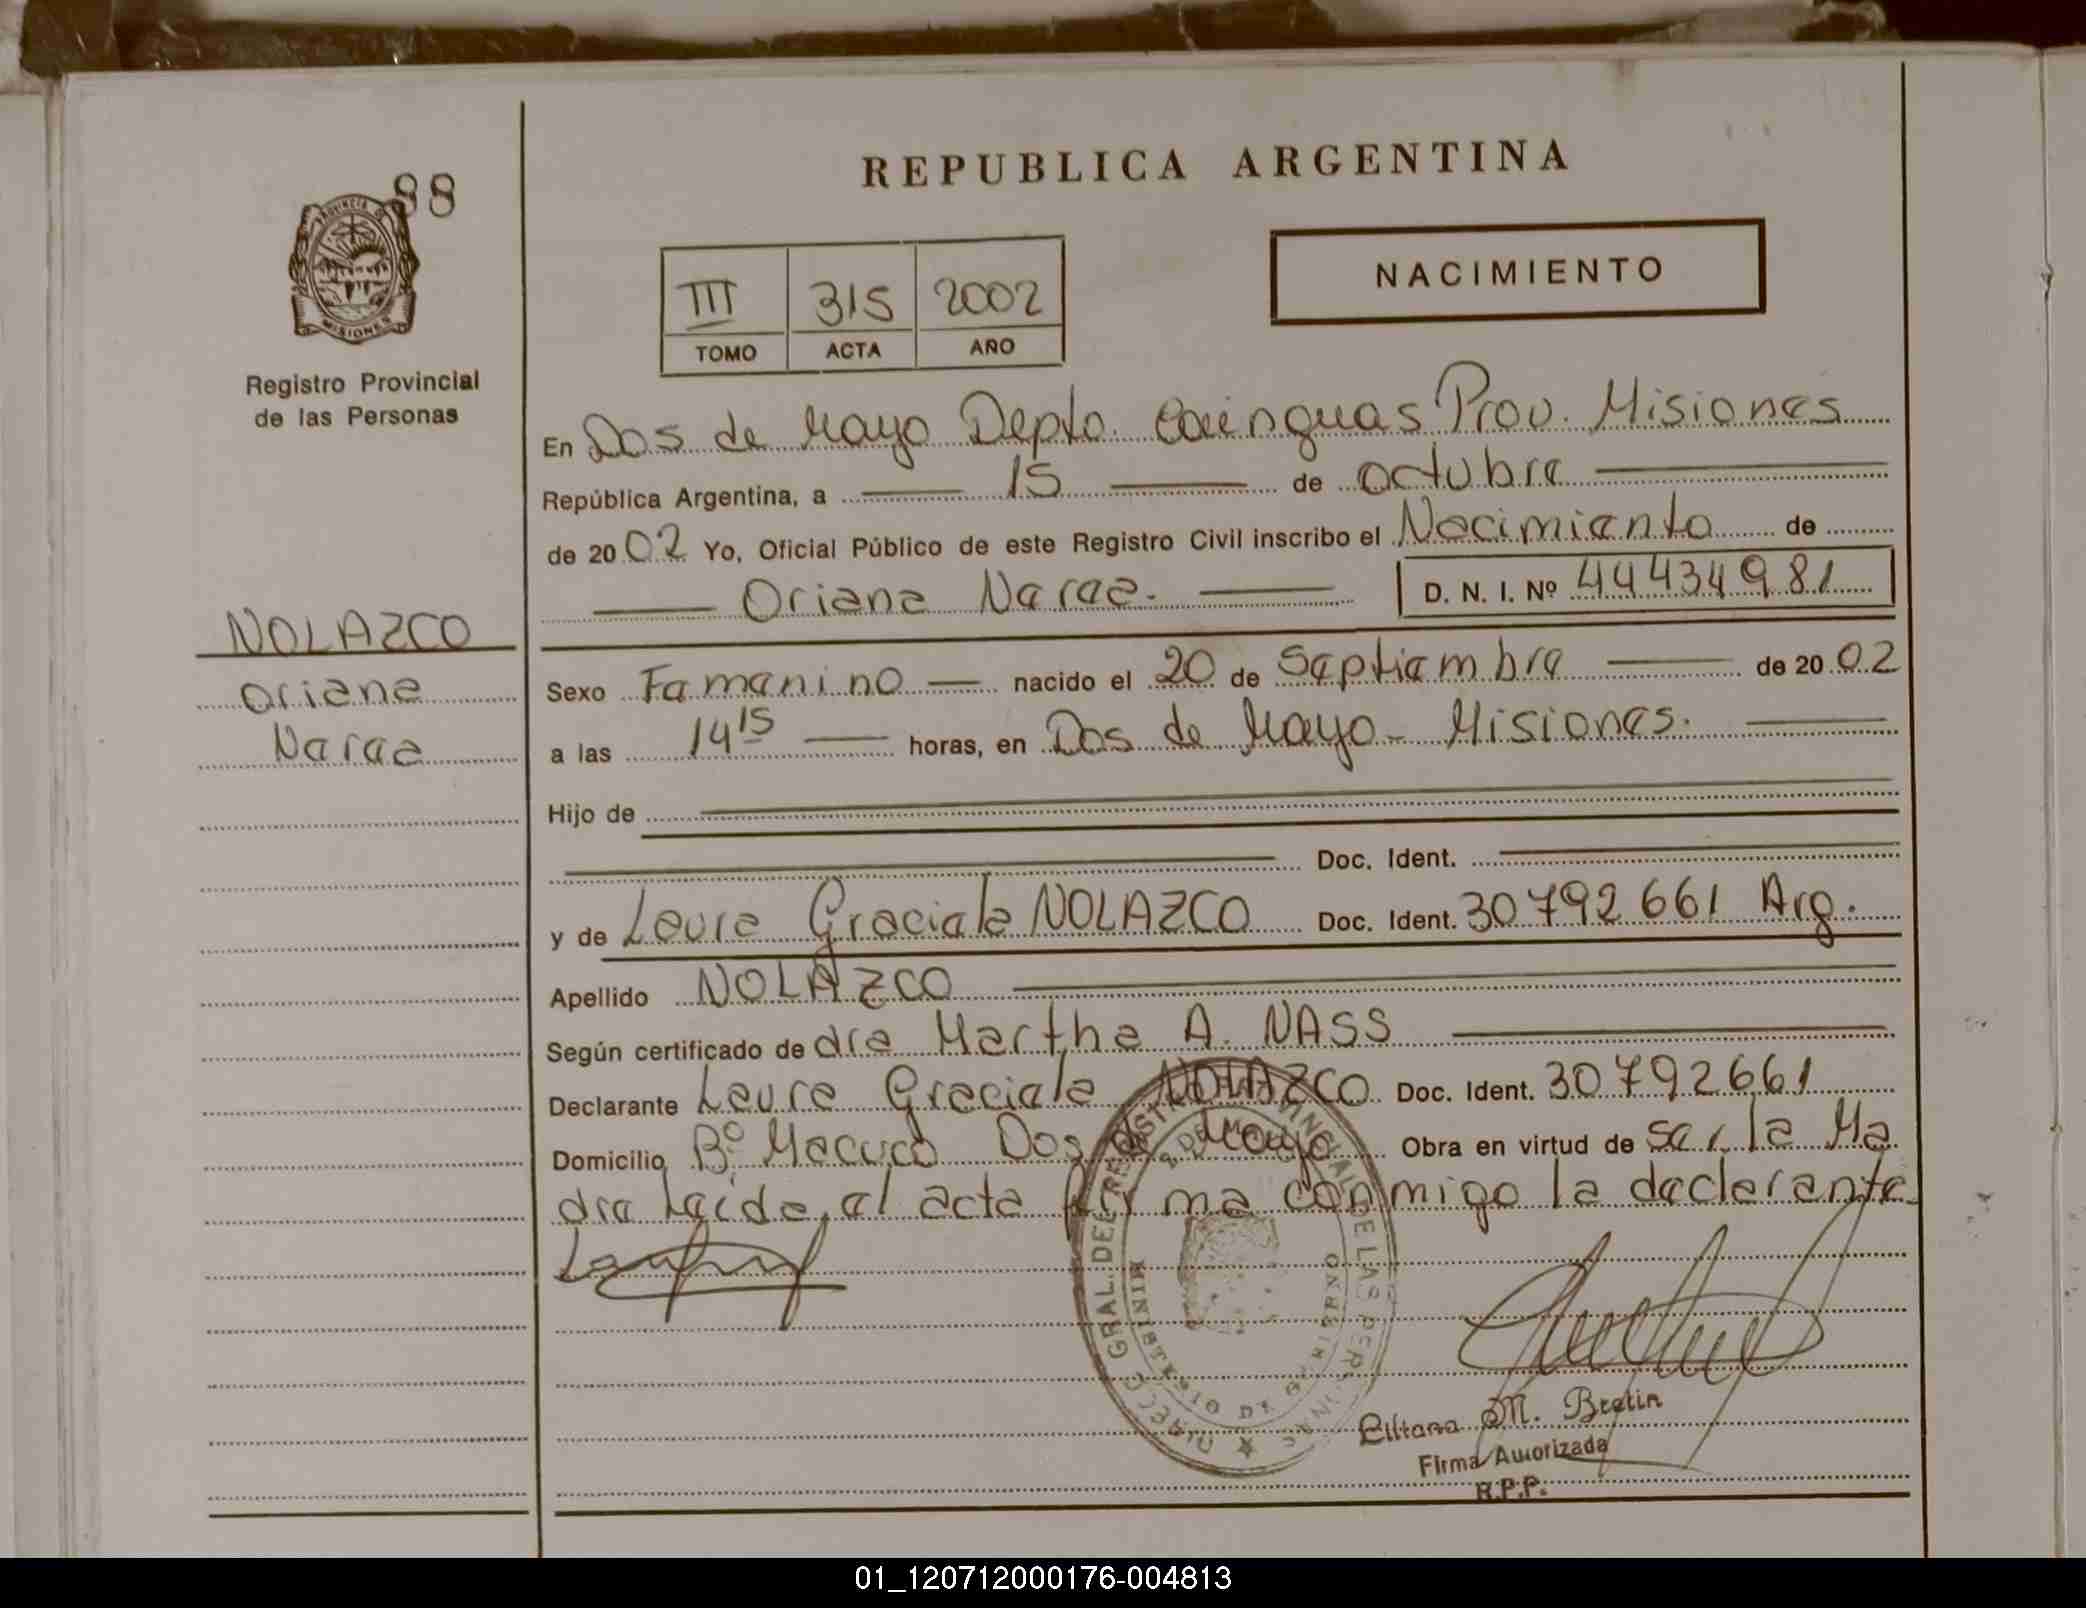 REPUBLICA ARGENTINA
88
PROVINCIA DE
MISIONES
Registro Provincial
de las Personas
III 315 2002
TOMO ACTA AÑO
NACIMIENTO
En Dos de Mayo Depto. Cainguas Prov. Misiones
República Argentina, a 15 de octubre
de 2002 Yo, Oficial Público de este Registro Civil inscribo el Nacimiento de
Oriana Narea. D. N. I. Nº 44434981
NOLAZCO
Oriana
Narea
Sexo Femenino nacido el 20 de Septiembre de 2002
a las 14 15 horas, en Dos de Mayo - Misiones.
Hijo de
Doc. Ident.
y de Laura Graciela NOLAZCO Doc. Ident. 30792661 Arg.
Apellido NOLAZCO
Según certificado de dra Martha A. NASS
Declarante Laura Graciela NOLAZCO Doc. Ident. 30792661
Domicilio Bº Macuco Dos de Mayo Obra en virtud de ser la Ma
dre Leída el acta firma conmigo la declarante
M. Bretin
Firma Autorizada
R.P.P.
01_120712000176-004813